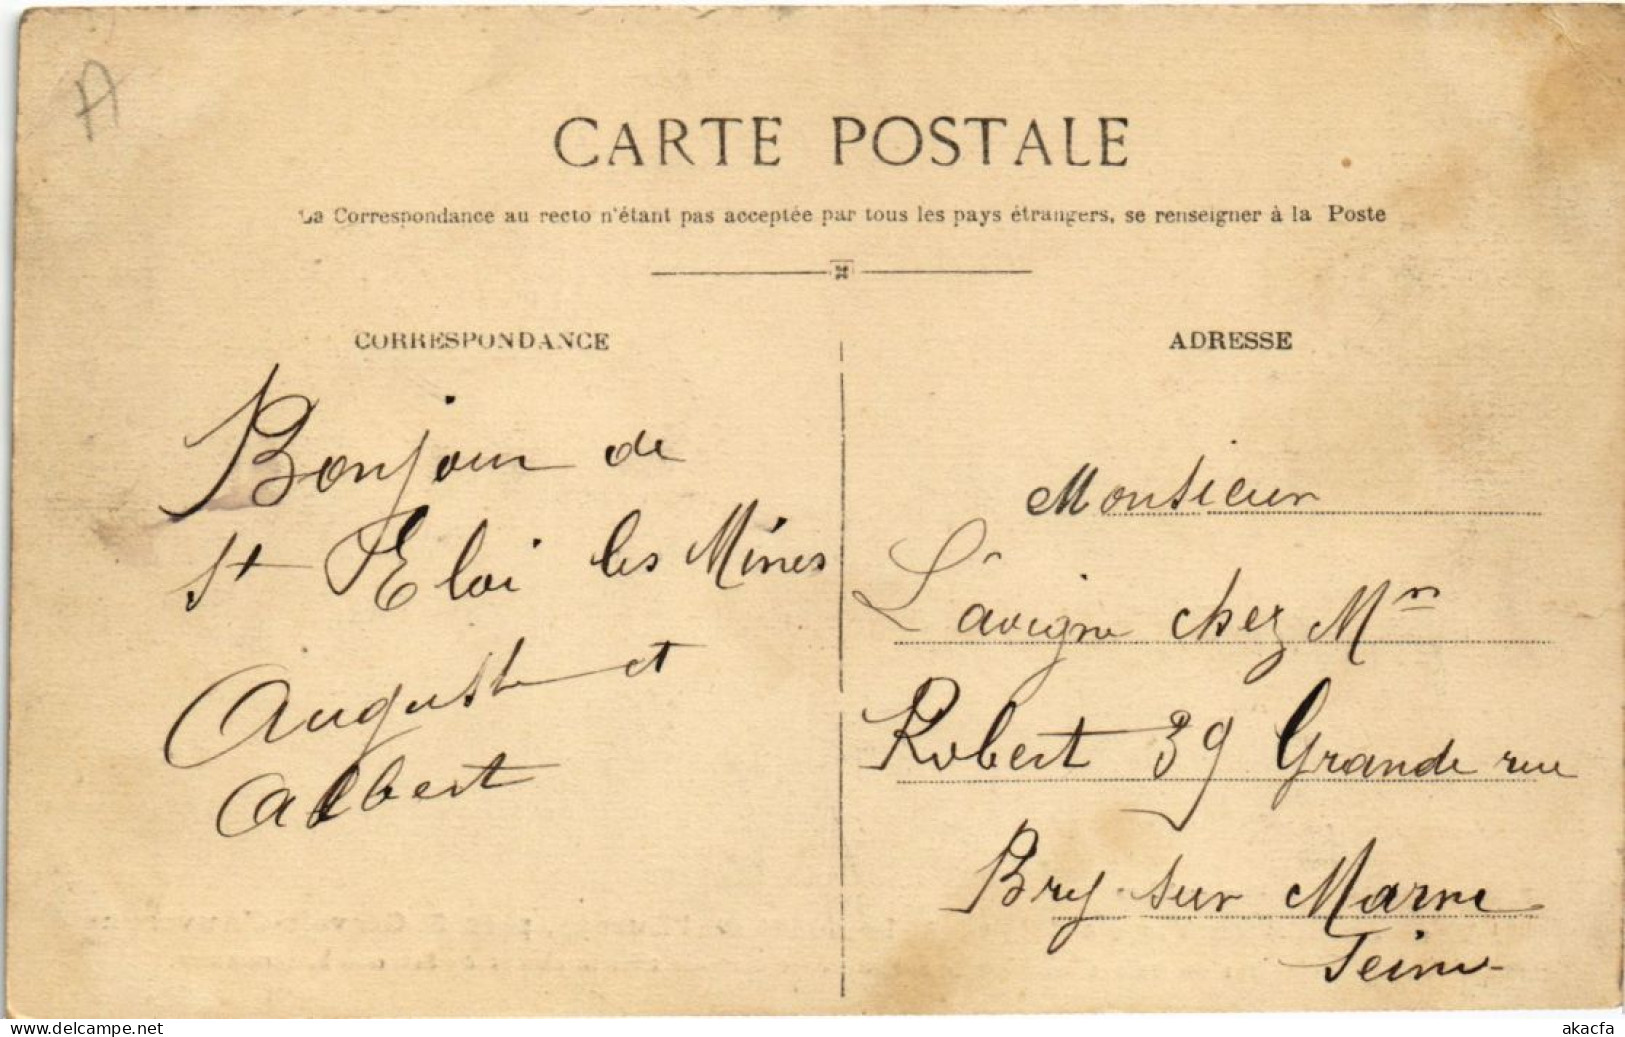 A
CARTE POSTALE
La Correspondance au recto n'étant pas acceptée par tous les pays étrangers, se renseigner à la Poste
CORRESPONDANCE
Bonjour de
St Eloi les Mines
Auguste et
Albert
ADRESSE
Monsieur
Lavigne chez Mr
Robert 39 Grande rue
Bry-sur Marne
Seine
www.delcampe.net
akacfa